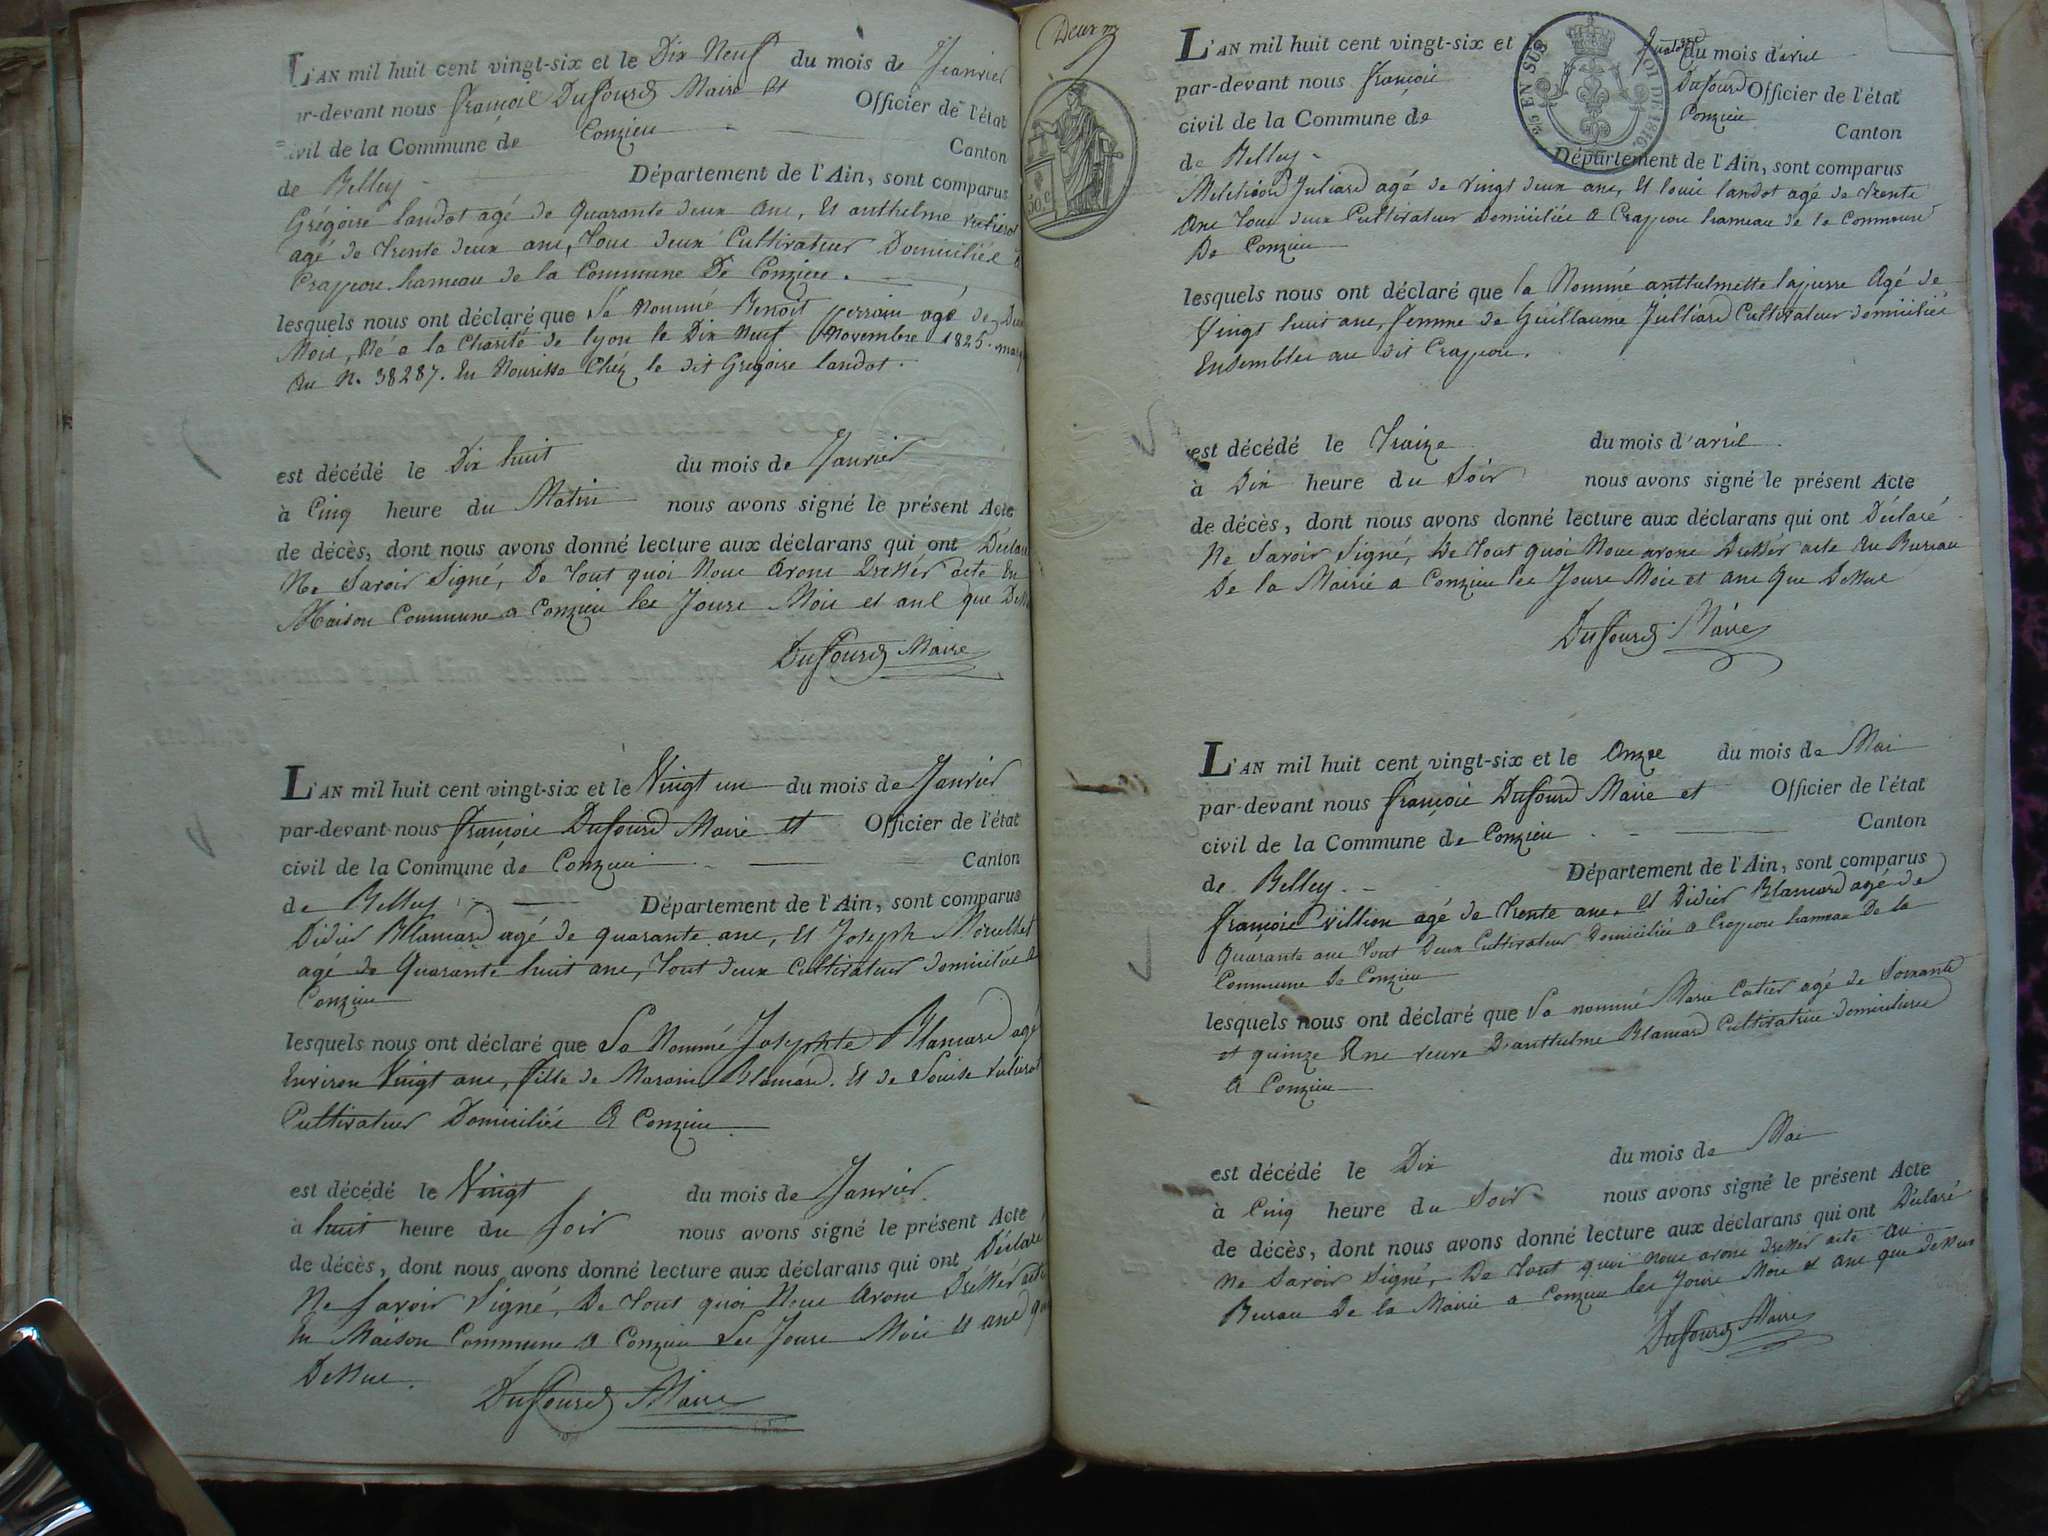 L'AN mil huit cent vingt-six et le Dix Neuf du mois de Janvier
par-devant nous françois Dufourd Maire et Officier de l'état
civil de la Commune de Conzieu Canton
de Belley Département de l'Ain, sont comparus
Grégoire landot agé de Quarante deux ans, Et anthelme
agé de trente deux ans, tous deux Cultivateur Domiciliés à
Crappou hameau de la Commune De Conzieu.
lesquels nous ont déclaré que Le Nommé Benoit perrain agé de Deux
Mois, Né a la Charité de lyon le Dix Neuf Novembre 1825.
Du N.º 38287. En Nourisse Chéz le dit Grégoire landot.
est décédé le Dix huit du mois de Janvier
à Cinq heure du Matin nous avons signé le présent Acte
de décès, dont nous avons donné lecture aux déclarans qui ont Déclaré
Ne Savoir Signé, De tout quoi Nous avons Dressér acte En
Maison Commune a Conzieu les Jours Mois et ans que Dessus
Dufourd Maire
L'AN mil huit cent vingt-six et le Vingt un du mois de Janvier
par-devant nous françois Dufourd Maire et Officier de l'état
civil de la Commune de Conzieu Canton
de Belley Département de l'Ain, sont comparus
Didier Blancard agé de quarante ans, Et Joseph
agé de Quarante huit ans, tout deux Cultivateur domiciliés a
Conzieu
lesquels nous ont déclaré que La Nommé Josephte Blancard agé
Environ Vingt ans, fille de Blancard. Et de Louise
Cultivateur Domiciliés a Conzieu
est décédé le Vingt du mois de Janvier
à huit heure du Soir nous avons signé le présent Acte
de décès, dont nous avons donné lecture aux déclarans qui ont Déclaré
Ne Savoir Signé, De tout quoi Nous avons Dressér acte
En Maison Commune a Conzieu Les Jours Mois Et ans que
Dessus.
Dufourd Maire
50 c.
EN SUS
LOI DE 1816.
L'AN mil huit cent vingt-six et le Quatorze du mois d'avril
par-devant nous françois Dufourd Officier de l'état
civil de la Commune de Conzieu Canton
de Belley Département de l'Ain, sont comparus
Juliard agé de vingt deux ans, Et louis landot agé de trente
ans tous deux Cultivateur Domiciliés a Crappou hameau de la Commune
De Conzieu
lesquels nous ont déclaré que la Nommé anthelmette lajusse Agé de
Vingt huit ans, femme de Guillaume Julliard Cultivateur domiciliés
Ensembles au dit Crappou.
est décédé le Traize du mois d'avril
à Dix heure du Soir nous avons signé le présent Acte
de décès, dont nous avons donné lecture aux déclarans qui ont Déclaré
Ne Savoir Signé, De tout quoi Nous avons Dressér acte Au Bureau
De la Mairie a Conzieu les Jours Mois et ans Que Dessus
Dufourd Maire
L'AN mil huit cent vingt-six et le Onzze du mois de Mai
par-devant nous françois Dufourd Maire et Officier de l'état
civil de la Commune de Conzieu Canton
de Belley Département de l'Ain, sont comparus
françois villion agé de trente ans, Et Didier Blancard agé de
Quarante ans tout Deux Cultivateur Domiciliés a Crappou hameau De la
Commune De Conzieu
lesquels nous ont déclaré que La nommé Marie Catier agé de Soixante
et quinze Ans veuve D'anthelme Blancard Cultivatrice domiciliées
a Conzieu
est décédé le Dix du mois de Mai
à Cinq heure du Soir nous avons signé le présent Acte
de décès, dont nous avons donné lecture aux déclarans qui ont Déclaré
ne Savoir Signé, De tout quoi nous avons dressér acte Au
Bureau De la Mairie a Conzieu les Jours Mois et ans que Dessus
Dufourd Maire